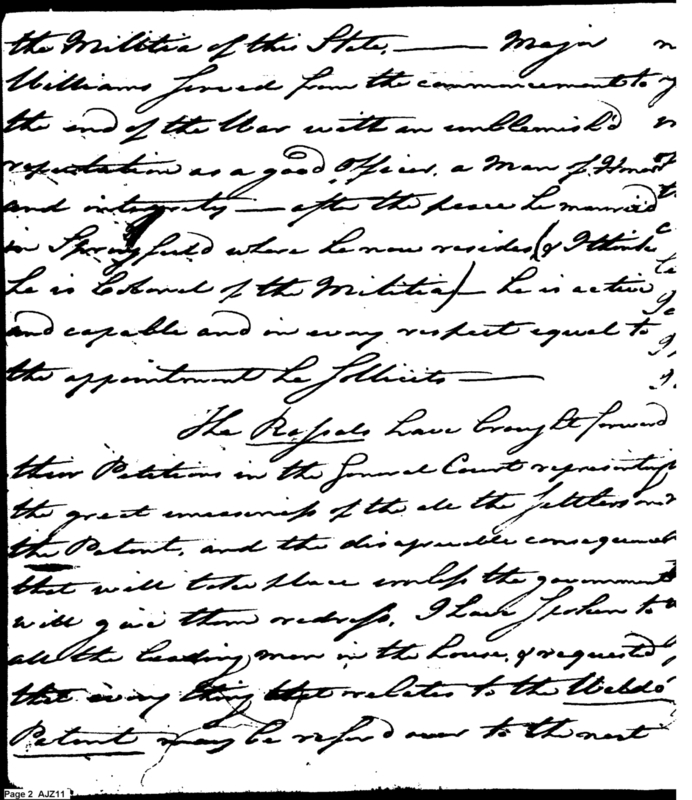 the Militia of this State. — Major
Williams served from the commencement to
the end of the War with an unblemish'd
reputation as a good Officer, a Man of Honor
and integrity — after the peace he married
in Springfield where he now resides (& I think
he is Colonel of the Militia) — he is active
and capable and in every respect equal to
the appointment he sollicits —
The Rassels have brought forward
their Petitions in the General Court representing
the great uneasiness of the the Settlers on
the Patent, and the disagreeable consequences
that will take place unless the government
will give them redress, I have spoken to
all the leading men in the house, & requested
that every thing that relates to the Waldo
Patent may be refer'd over to the next
Page 2 AJZ11